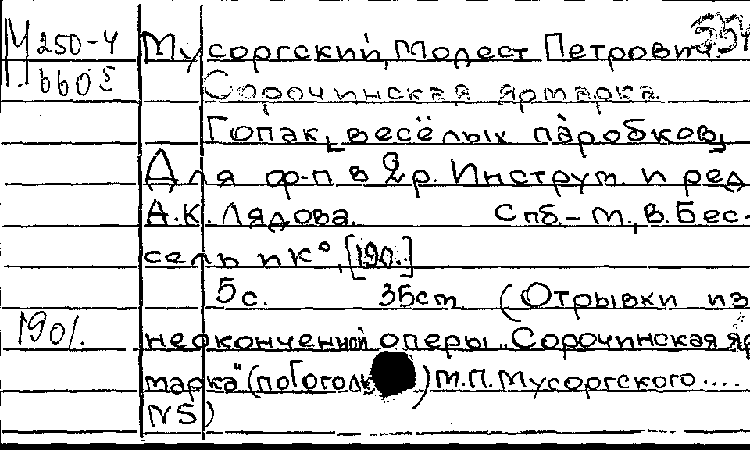 М 250-4
П 660⁵
554
Мусоргский, Модест Петрович.
Сорочинская ярмарка.
Гопак [весёлых паробков]
Для ф-п в 2 р. Инструм. и ред
А.К. Лядова. Спб – М., В. Бес-
сель и к°, [190.]
5 с. 35 cm. (Отрывки из
190/.
неоконченной оперы „Сорочинская яр
марка" (по Гоголю) М.П. Мусоргского....
N5)